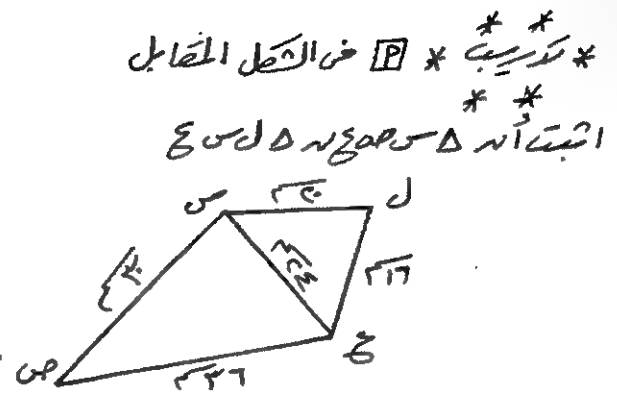 * تدريب * [P] في الشكل المقابل
* * * *
اثبت أن Δ س ص ع ~ Δ ل س ع
ل
٢٠سم
س
٣٠سم
٢٤سم
١٦سم
ع
٣٦سم
ص